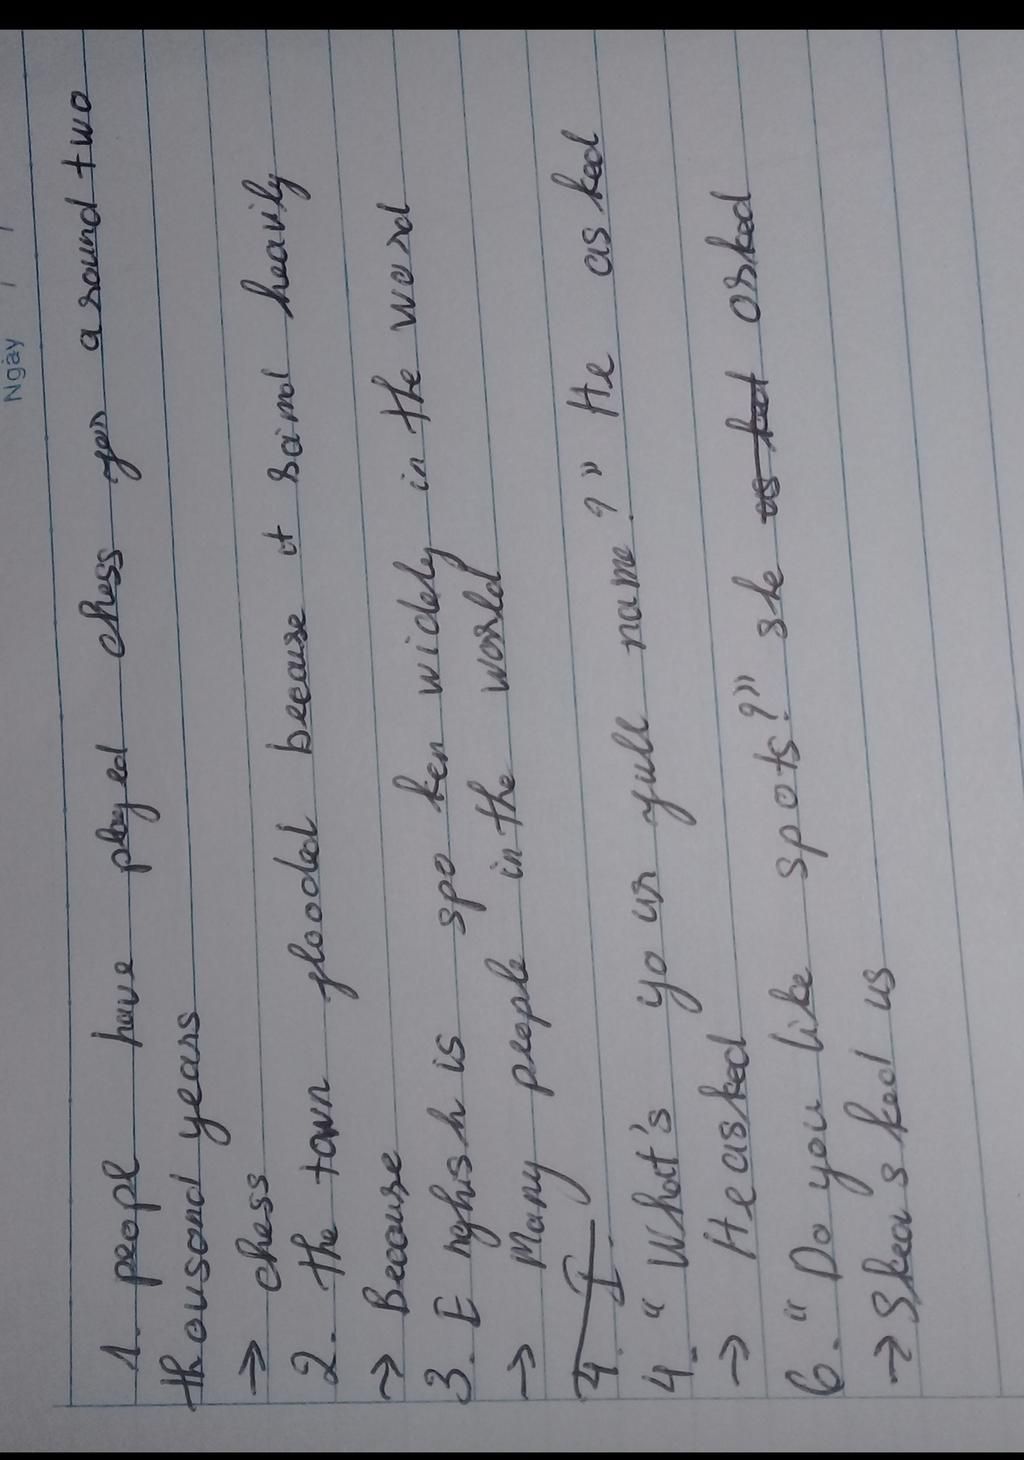 Ngày / /
1. peopl have played chess for around two
thousand years
→ chess
2. the town flooded because it raind heavily
→ Because
3. English is spo ken widely in the word
→ Many people in the world
4. I
4. "What's your full name?" He asked
→ He asked
6. "Do you like spots?" she asked
→ She asked us